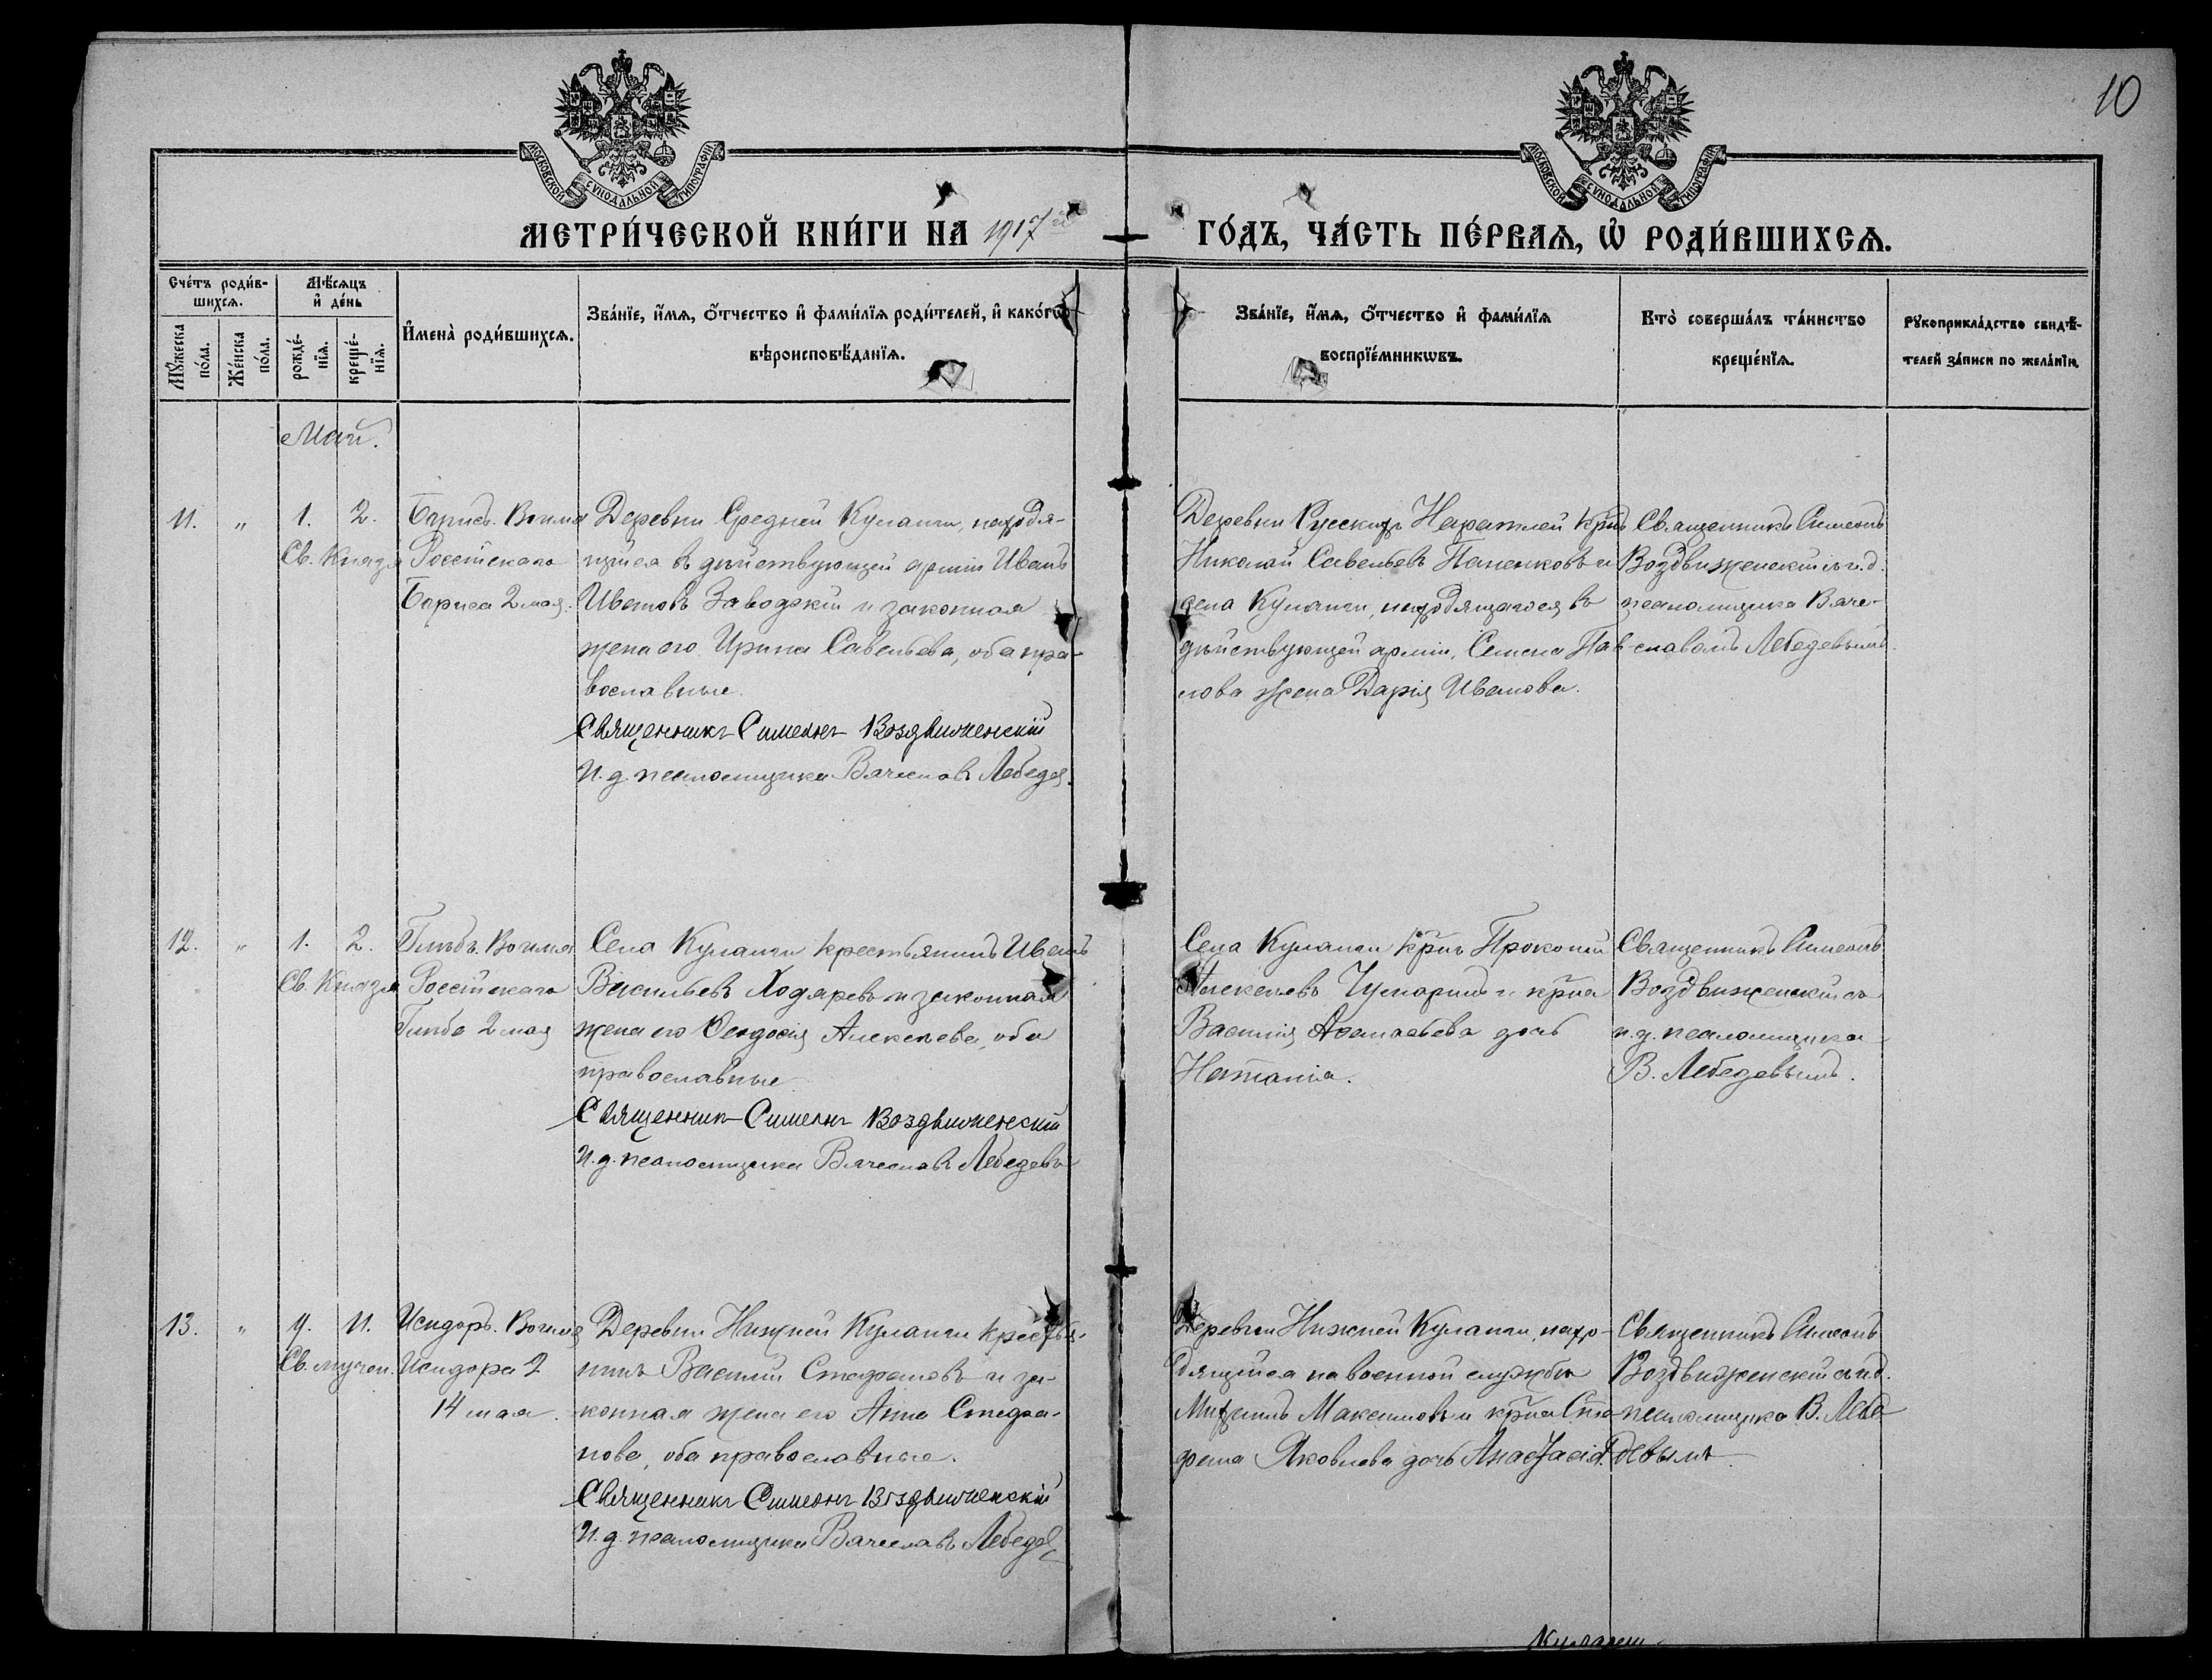 10
МОСКОВСКОЙ СѴНОДАЛЬНОЙ ТИПОГРАФІИ
МОСКОВСКОЙ СѴНОДАЛЬНОЙ ТИПОГРАФІИ
МЕТРИ́ЧЕСКОЙ КНИ́ГИ НА 1917й ГО́ДЪ, ЧА́СТЬ ПЕ́РВАѦ, Ѡ҆ РОДИ́ВШИХСѦ.
Сче́тъ роди́в-
шихсѧ.
Мꙋ́жеска по́ла.
Же́нска по́ла.
Мѣ́сѧцъ и҆ де́нь
рожде́-
нїѧ.
креще́-
нїѧ.
И҆мена̀ роди́вшихсѧ.
Зва́нїе, и҆́мѧ, ѻ҆́тчество и҆ фами́лїѧ роди́телей, и҆ како́гѡ
вѣроисповѣ́данїѧ.
Зва́нїе, и҆́мѧ, ѻ҆́тчество и҆ фами́лїѧ
воспрїе́мникѡвъ.
Кто̀ соверша́лъ та́инство
креще́нїѧ.
Рꙋкоприкла́дство свидѣ́-
телей за́писи по жела́нїю.
Май.
11. " 1. 2.
Св. Князя
Борисъ. Во имя
Россійскаго
Бориса 2 мая.
Деревни Средней Куланги, находя-
щійся въ дѣйствующей арміи Иванъ
Ивановъ Заводскій и законная
жена его Ирина Савельева, оба пра-
вославные.
Священникъ Симеонъ Воздвиженскій
И. д. псаломщика Вячеславъ Лебедев.
Деревни Русскихъ Наратлей кр-нъ
Николай Савельевъ Паненковъ и
села Куланги, находящагося въ
дѣйствующей арміи, Семена Пав-
лова жена Дарія Иванова.
Священникъ Симеонъ
Воздвиженскій съ и. д.
псаломщика Вяче-
славомъ Лебедевымъ.
12. " 1. 2.
Св. Князя
Глѣбъ. Во имя
Россійскаго
Глѣба 2 мая
Села Куланги крестьянинъ Иванъ
Васильевъ Ходяревъ и законная
жена его Ѳеодосія Алексѣева, оба
православные
Священник Симеонъ Воздвиженскій
И. д. псаломщика Вячеславъ Лебедевъ
Села Куланги кр-нъ Прокопій
Алексѣевъ и кр-на
Василія дочь
Наталія.
Священникъ Симеонъ
Воздвиженскій съ
и. д. псаломщика
В. Лебедевымъ.
13. " 9. 11.
Св. мучен.
Исидоръ. Во имя
Исидора 2
14 мая.
Деревни Нижней Куланги крестья-
нинъ Василій Стефановъ и за-
конная жена его Анна Стефа-
нова, оба православные.
Священникъ Симеонъ Воздвиженскій
И. д. псаломщика Вячеславъ Лебедев
Деревни Нижней Куланги, нахо-
дящійся на военной службѣ
Михаилъ Максимовъ и кр-на Сте-
фана Яковлева дочь Анастасія.
Священникъ Симеонъ
Воздвиженскій съ и. д.
псаломщика В. Лебе-
девымъ.